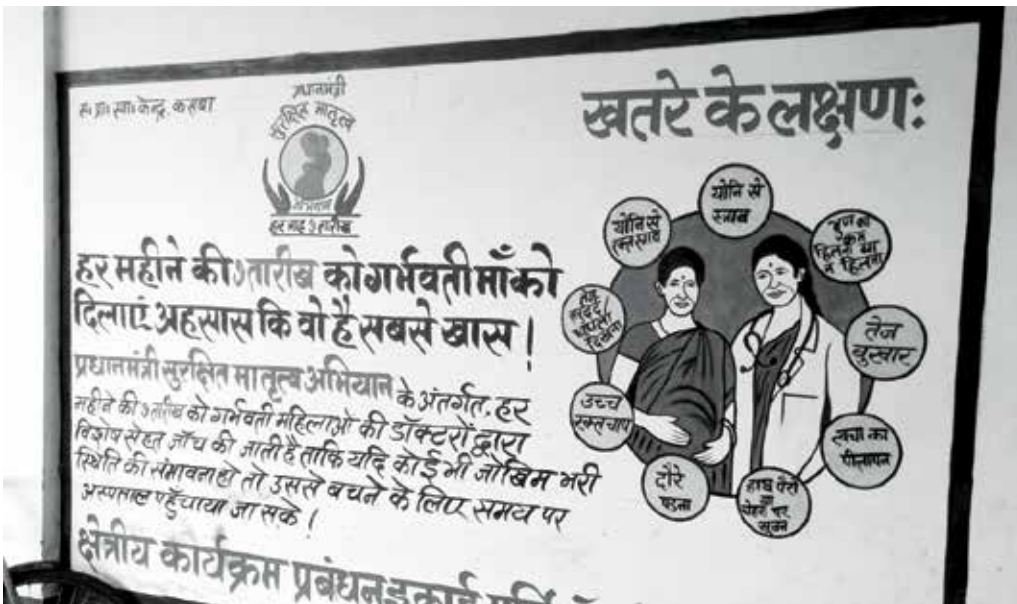 स॰ प्रा॰ स्वा॰ केन्द्र, कसबा
प्रधानमंत्री
सुरक्षित मातृत्व
अभियान
हर माह ९ तारीख
हर महीने की ९ तारीख को गर्भवती माँ को
दिलाएं अहसास कि वो है सबसे खास !
प्रधानमंत्री सुरक्षित मातृत्व अभियान के अंतर्गत, हर
महीने की ९ तारीख को गर्भवती महिलाओं की डॉक्टरों द्वारा
विशेष सेहत जाँच की जाती है ताकि यदि कोई भी जोखिम भरी
स्थिति की संभावना हो तो उससे बचने के लिए समय पर
अस्पताल पहुँचाया जा सके !
क्षेत्रीय कार्यक्रम प्रबंधन इकाई
खतरे के लक्षण:
योनि से
स्त्राव
योनि से
रक्तस्त्राव
भ्रूण का
कम
हिलना या
न हिलना
तेज
बुखार
त्वचा का
पीलापन
हाथ पैरों
या
चेहरे पर
सूजन
दौरे
पड़ना
उच्च
रक्तचाप
तेज